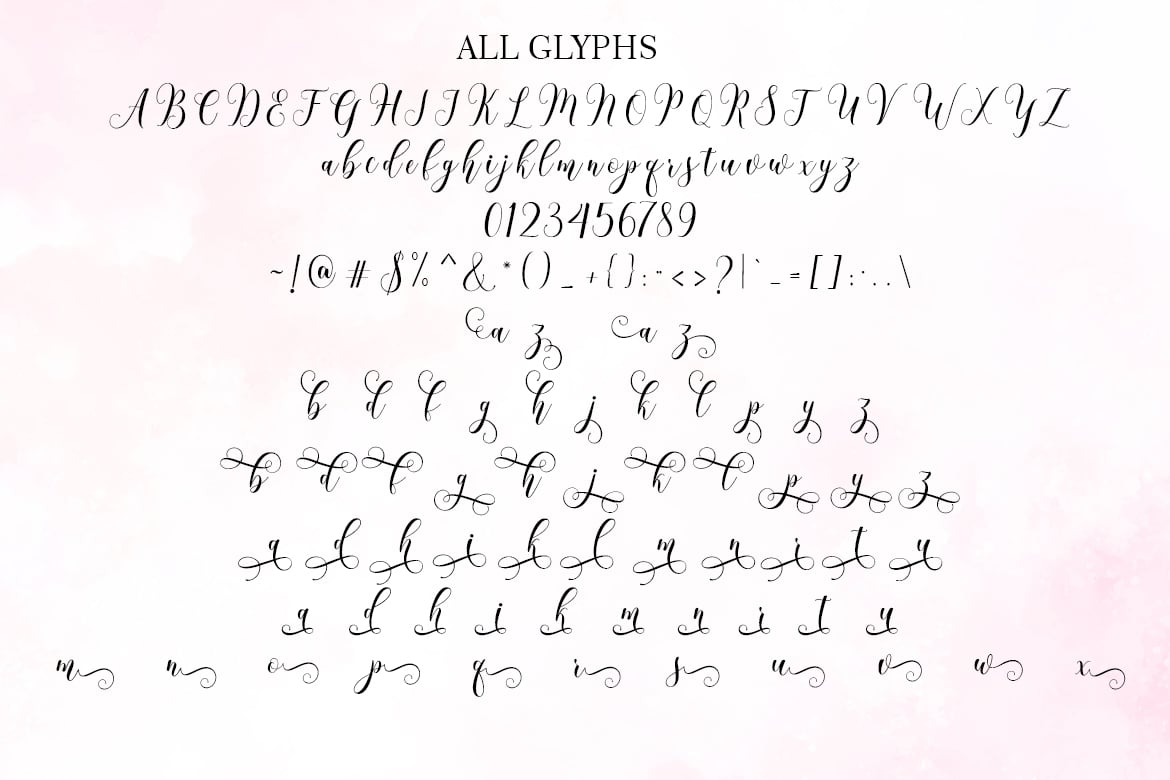 ALL GLYPHS
A B C D E F G H I J K L M N O P Q R S T U V W X Y Z
a b c d e f g h i j k l m n o p q r s t u v w x y z
0 1 2 3 4 5 6 7 8 9
~ ! @ # $ % ^ & * ( ) _ + { } : " < > ? | ` - = [ ] : ' . . \
a z a z
b d f g h j k l p y z
b d f g h j k l p y z
a d h i k l m n i t u
a d h i k m n i t u
m n o p q r s u v w x